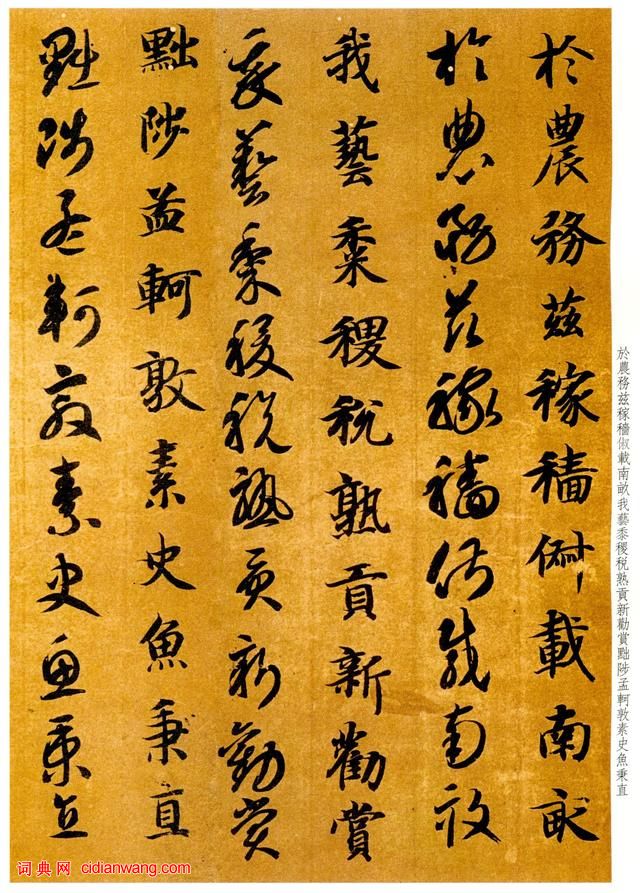 於農務兹稼穡俶載南畝我藝黍稷稅熟貢新勸賞黜陟孟軻敦素史魚秉直
於農務茲稼穡俶載南畝
於農務茲稼穡俶載南畝
我藝黍稷稅熟貢新勸賞
我藝黍稷稅熟貢新勸賞
黜陟孟軻敦素史魚秉直
黜陟孟軻敦素史魚秉直
词典网 cidianwang.com